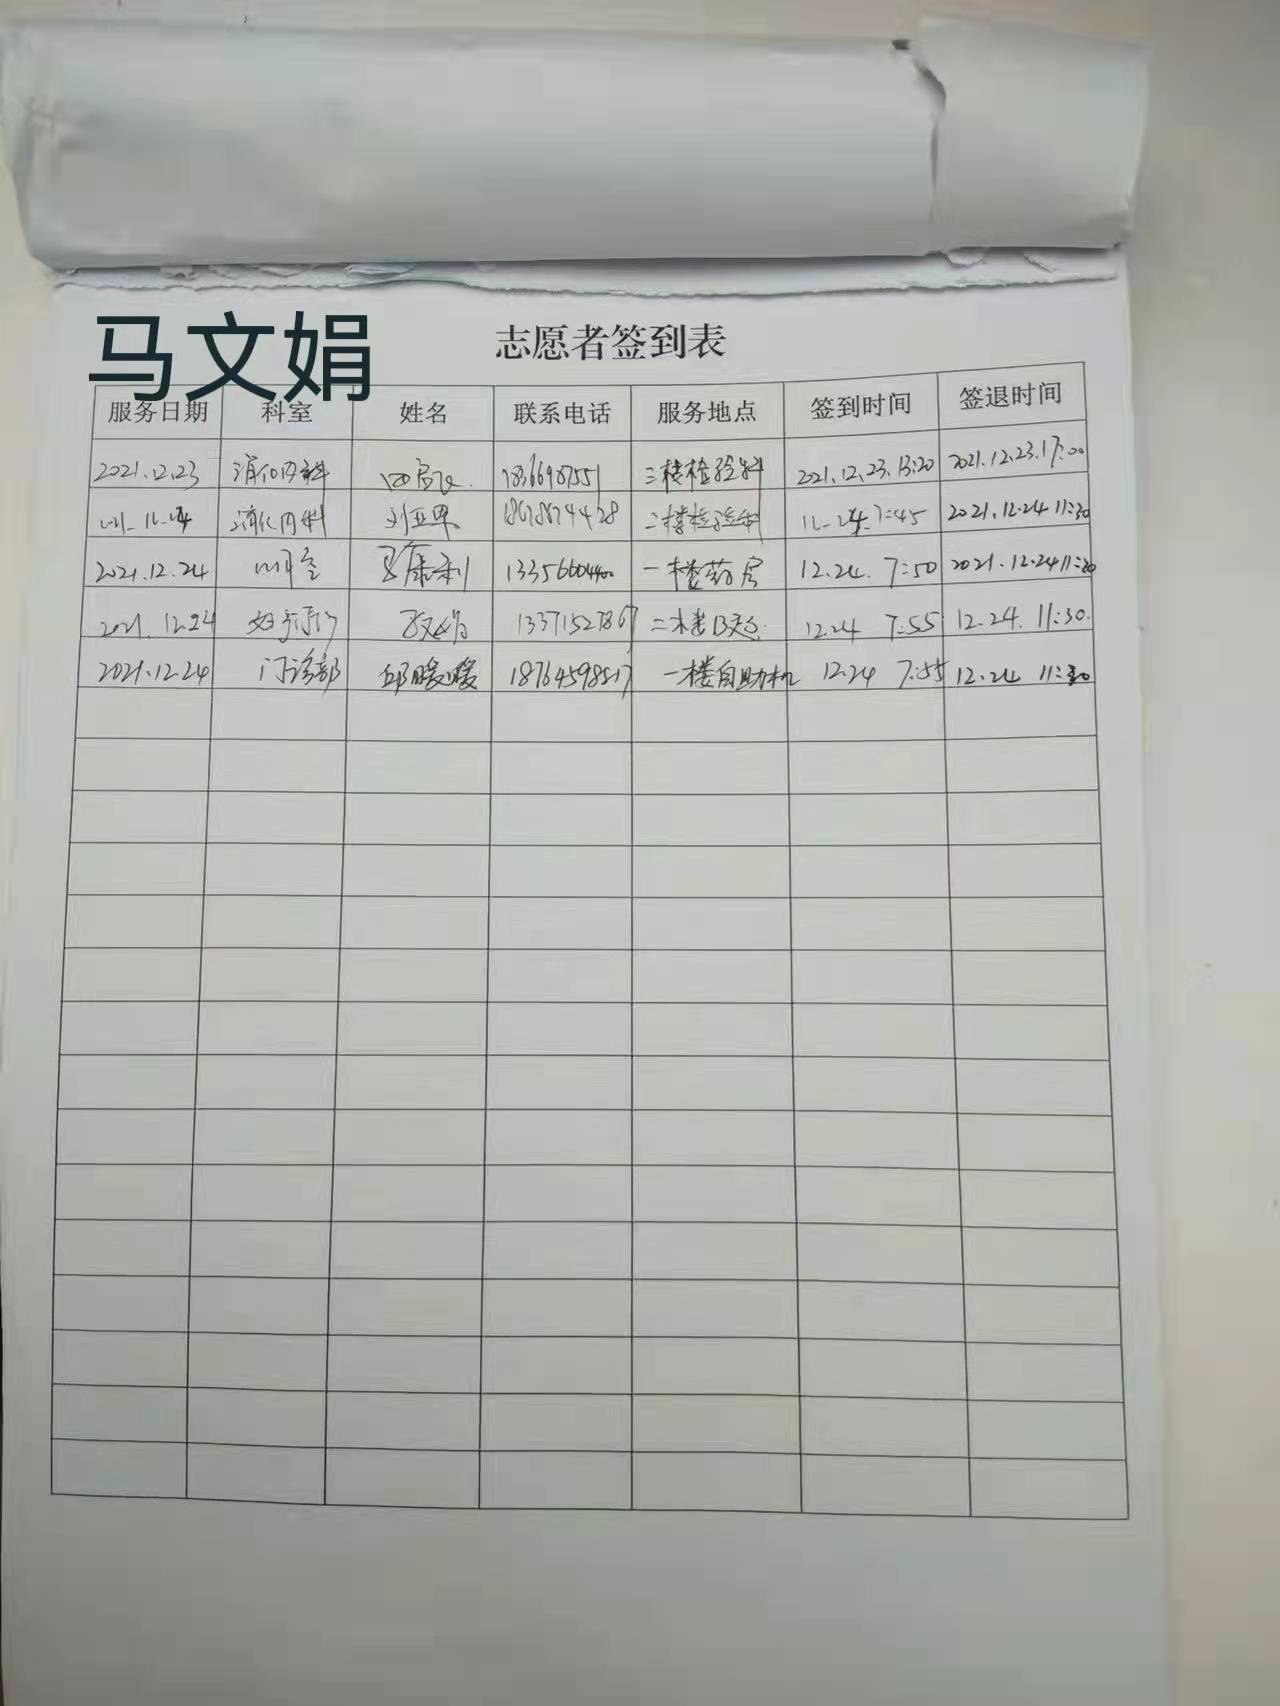 马文娟
志愿者签到表
服务日期 科室 姓名 联系电话 服务地点 签到时间 签退时间
2021.12.23 消化内科 18366987551 三楼检验科 2021.12.23.13:20 2021.12.23.17:00
消化内科 刘亚男 18678674428 二楼检验科 12.24.7:45 2021.12.24 11:30
2021.12.24 马康利 13356604400 一楼药房 12.24. 7:50 2021.12.24 11:30
2021.12.24 马文娟 13371527867 二楼B超 12.24 7:55 12.24. 11:30.
2021.12.24 门诊部 邱暖暖 18764598517 一楼自助机 12.24 7:55 12.24 11:30